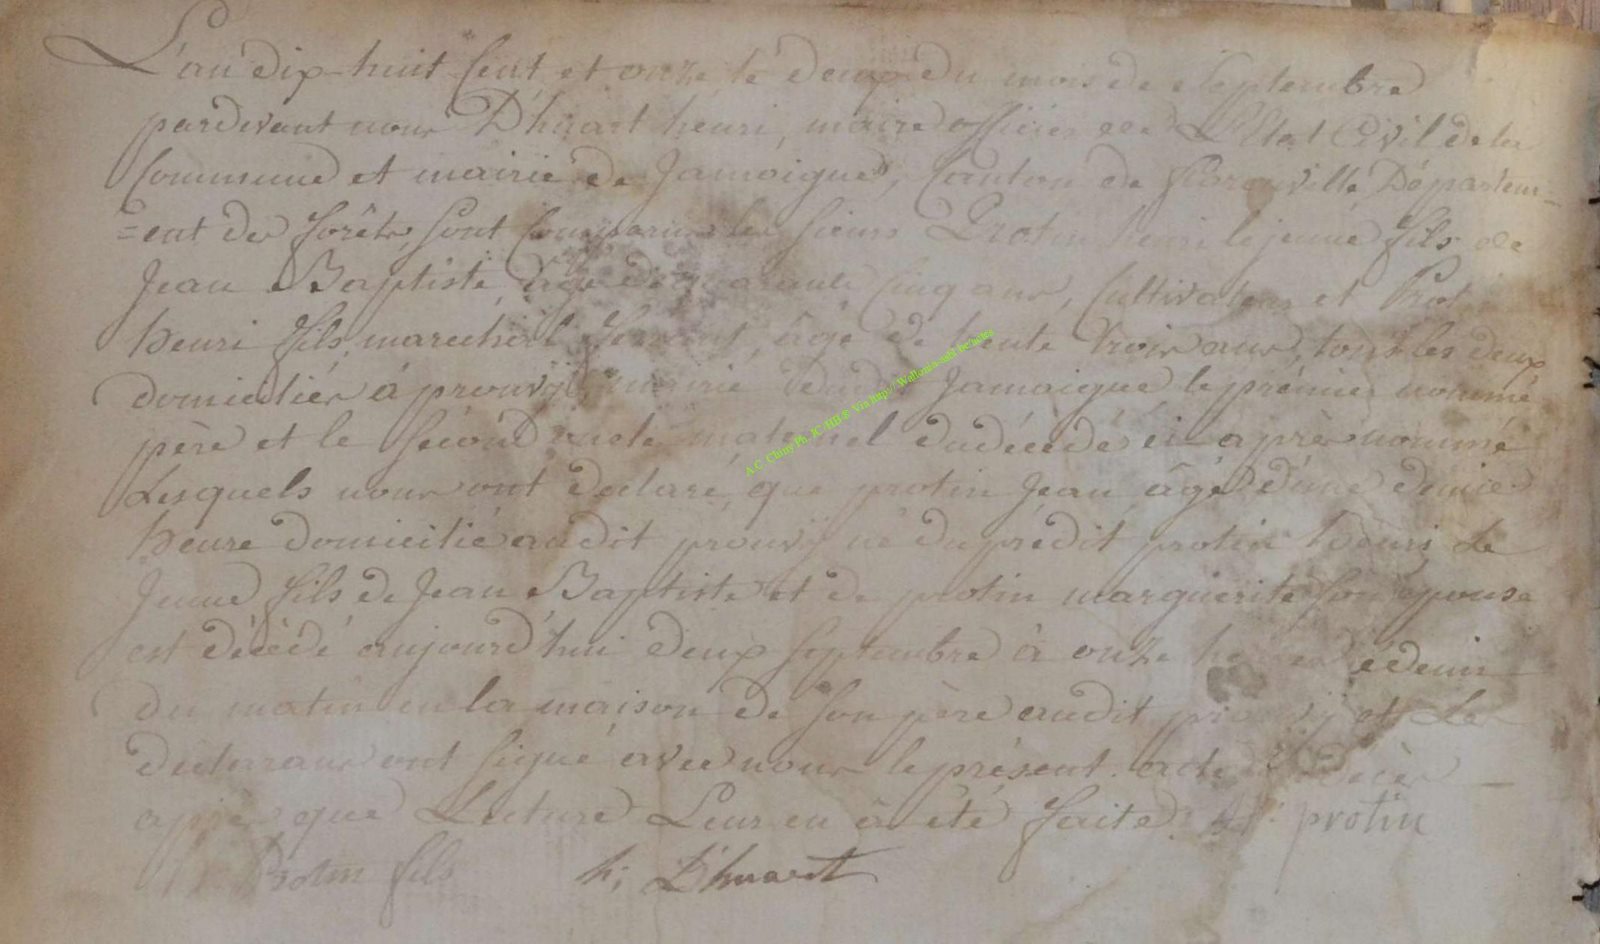 L'an dix-huit Cent et onze, le deux du mois de Septembre
pardevant nous D'huart henri, maire officier de L'Etat Civil de la
Commune et mairie de Jamoigne, Canton de florenville, Départem-
=ent des forêts, sont Comparus les sieurs Protin henri le jeune fils de
Jean Baptiste, âgé de quarante Cinq ans, Cultivateur et Prot
henri fils, marechal ferrant, âgé de trente trois ans, tous les deux
domiciliés à prouvy, mairie dudit Jamoigne, le prémier nommé
père et le sécond oncle maternel du décédé ci-après nommé
Lesquels nous ont declaré, que protin Jean âgé d'une demie
heure domicilié audit prouvy né du prédit protin henri, le
Jeune fils de Jean Baptiste et de protin marguerite son épouse
est décédé aujourd'hui deux Septembre à onze heures et demie
du matin en la maison de son père audit prouvy et les
declarans ont signé avec nous le présent acte de décès
après que Lecture Leur en â été faite. protin
Protin fils h; D'huart
A.C. Chiny Ph. JC /HB ® Via http://